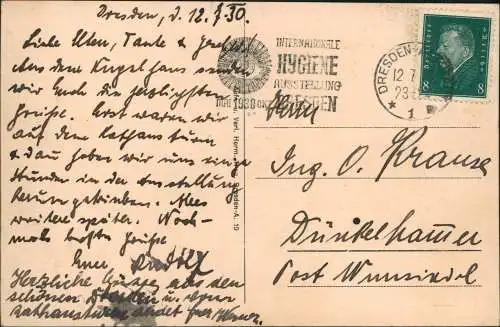 Dresden, d. 12.7.30.
Liebe Eltern, Tante &
Aus dem Kugelhaus senden
wir Euch die herzlichsten
Grüße. Erst waren wir
auf dem Rathausturm
& dann haben wir uns einige
Stunden in der Ausstellung
herumgetrieben. Alles
weitere später. Noch-
mals herzl. Grüße
Euer Rudolf
Herzliche Grüße aus dem
schönen Dresden u. vom
Rathausturm sendet
INTERNATIONALE
HYGIENE
AUSSTELLUNG
DRESDEN
MAI 1930 OKT
DRESDEN
12.7
23
* 1
Deutsches Reich
8 8
Herrn
Ing. O. Krause
Dünkelhammer
Post Wunsiedel
Verl. Dresden-A. 19